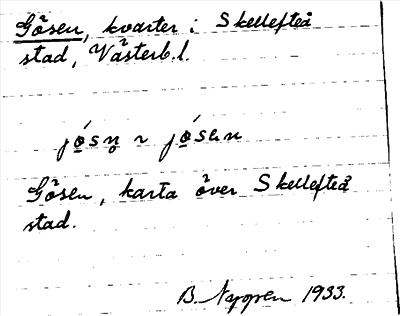 Gösen, kvarter i Skellefteå
stad, Västerb.l.
jó̲sn̥ ~ jó̲sɛn
Gösen, karta över Skellefteå
stad.
B. Nygren 1933.